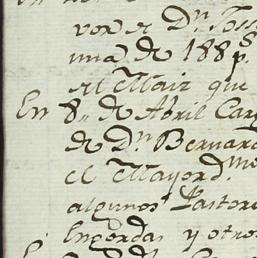 vor de Dn. Joss
una de 188 ps.
el Maiz que
En 8,, de Abril Carg
de Dn. Bernard
el Mayordmo
algunos Pastore
Engordas y otro